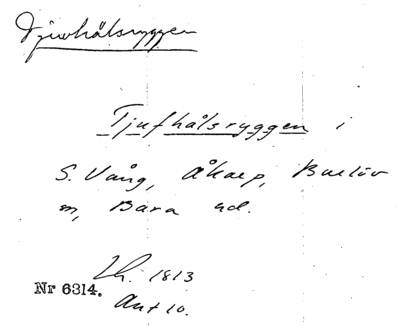 Tjuvhålsryggen
Tjufhålsryggen i
S. Vång, Åkarp, Burlöv
sn, Bara hd.
Lh. 1813
Nr 6314.
Akt 10.